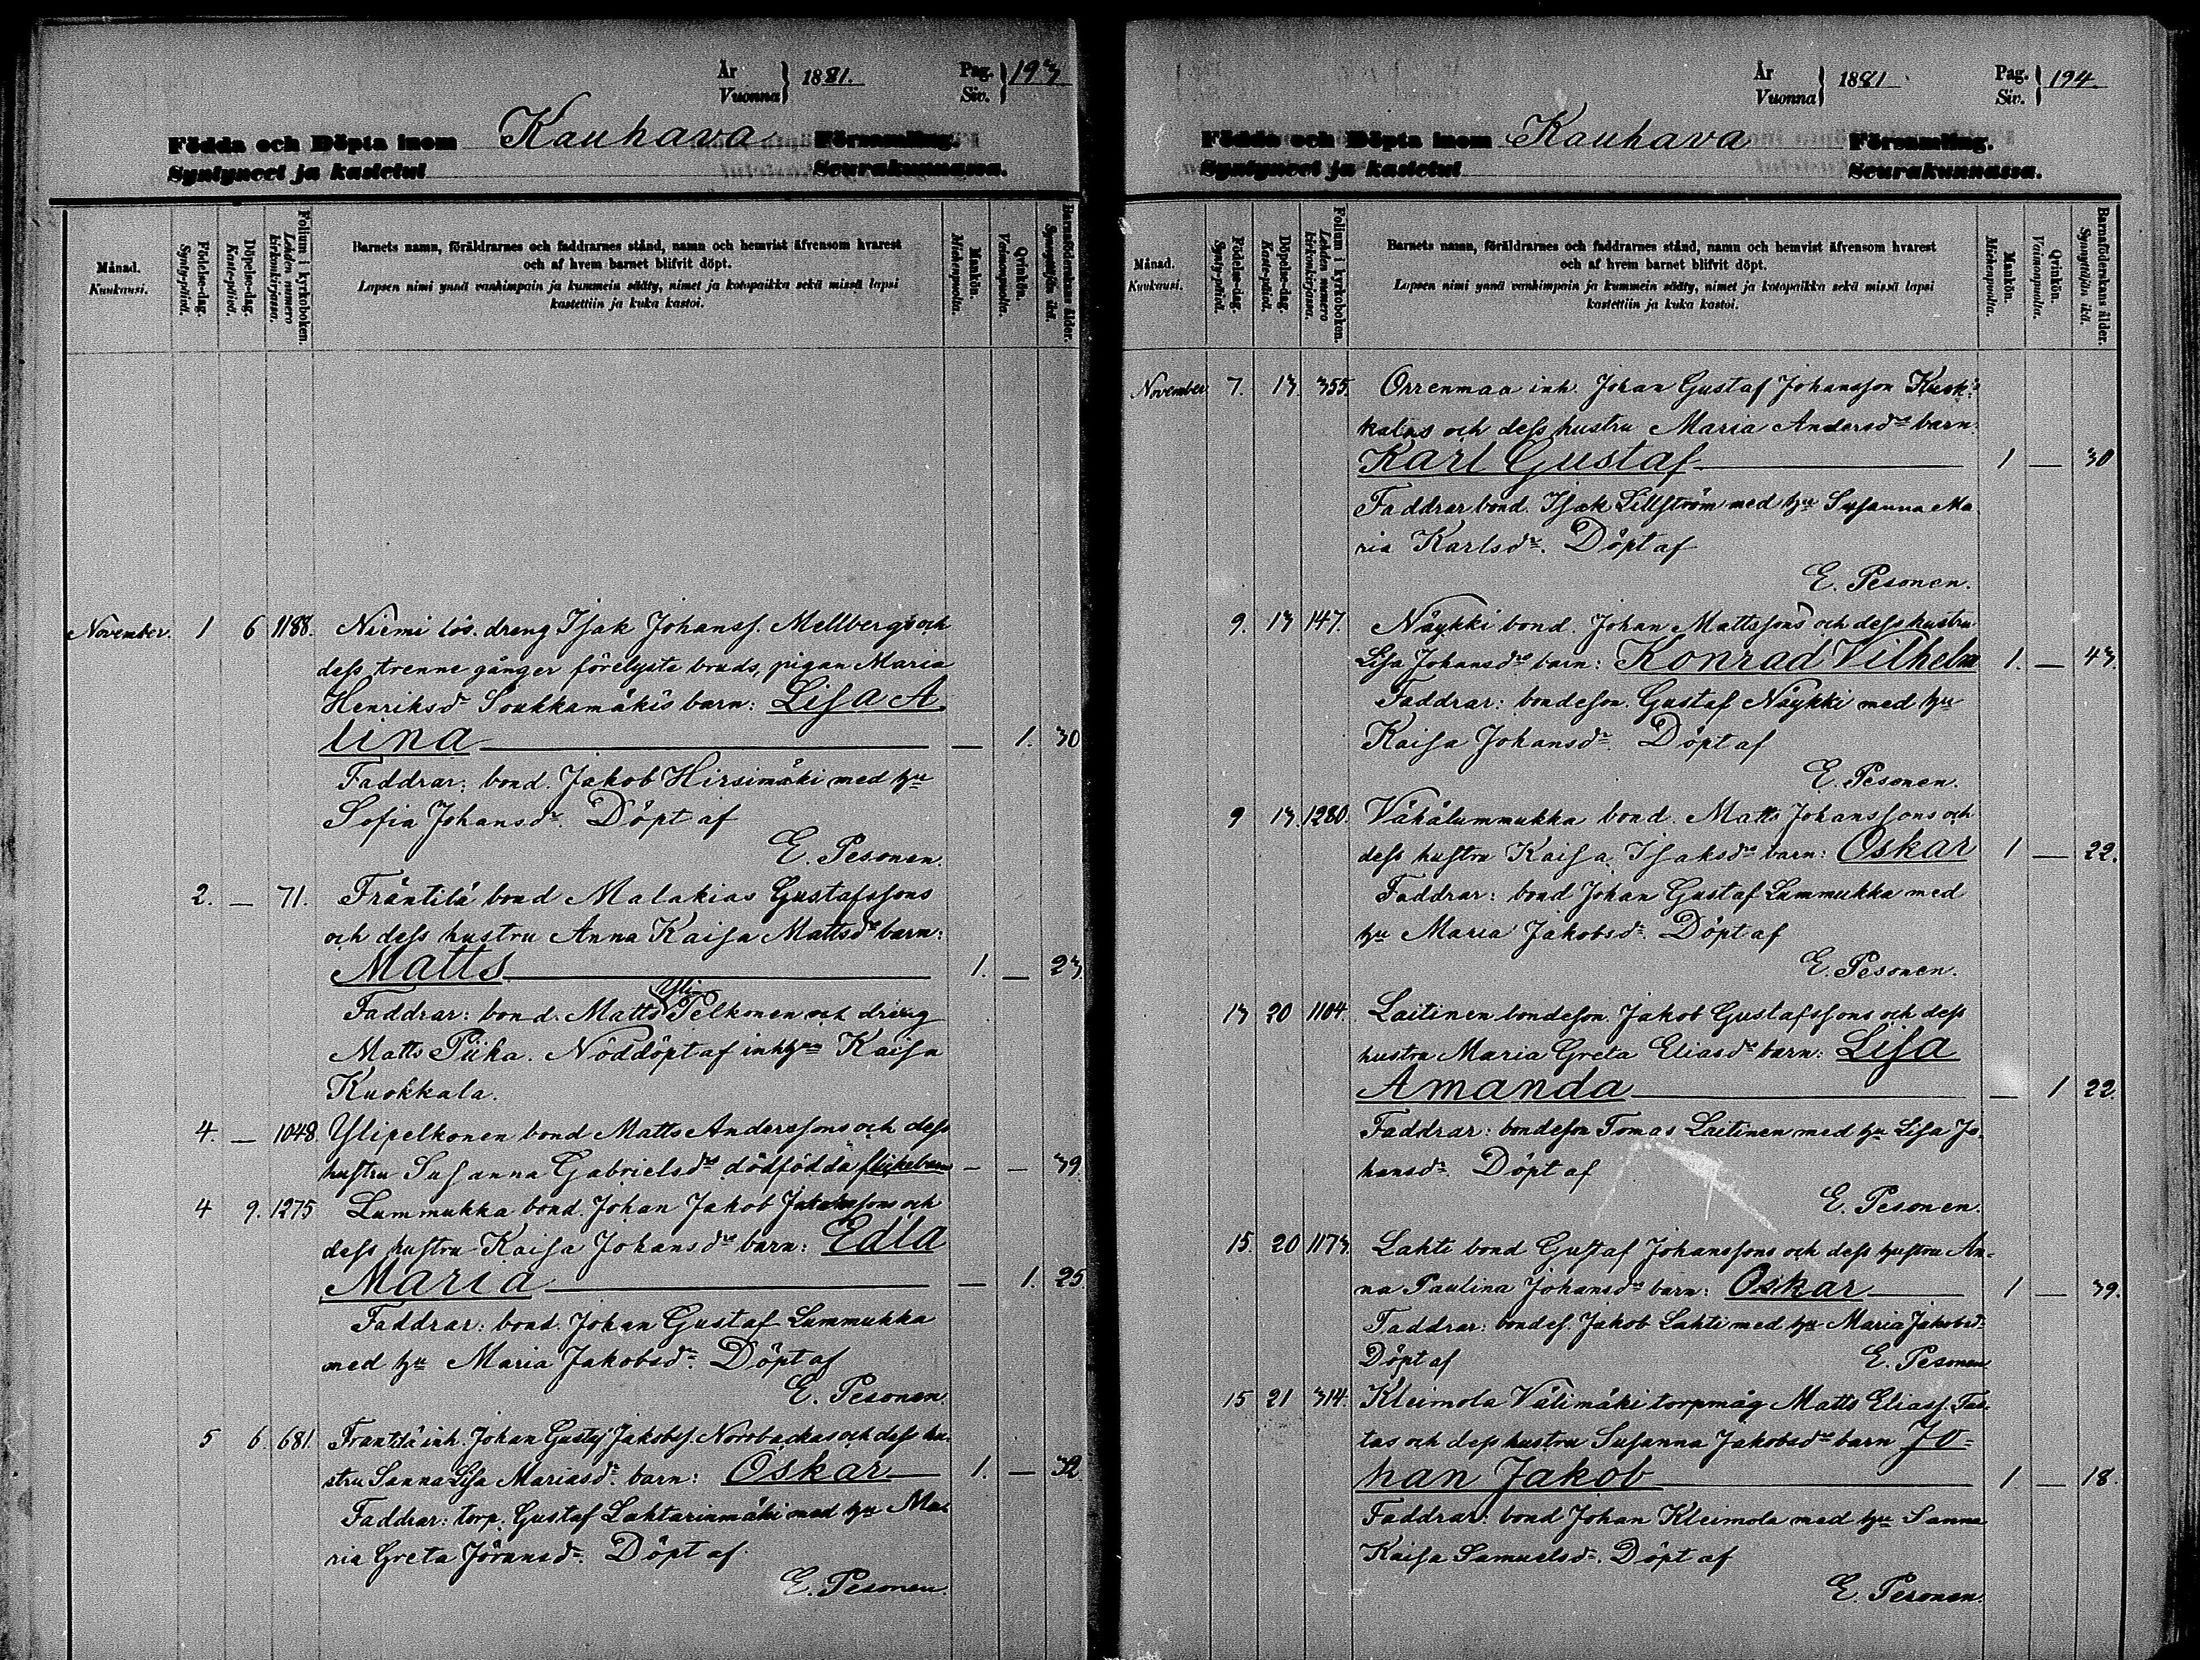 År
Vuonna } 1881.
Pag.
Siv. } 193
Födda och Döpta inom Kauhava Församling.
Syntyneet ja kastetut Seurakunnassa.
Månad.
Kuukausi.
Födelse-dag.
Synty-päivä.
Döpelse-dag.
Kaste-päivä.
Folium i kyrkoboken.
Lehden numero kirkonkirjassa.
Barnets namn, föräldrarnes och faddrarnes stånd, namn och hemvist äfvensom hvarest
och af hvem barnet blifvit döpt.
Lapsen nimi ynnä vanhimpain ja kummein sääty, nimet ja kotopaikka sekä missä lapsi
kastettiin ja kuka kastoi.
Mankön.
Miehenpuolia.
Qvinkön.
Vaimonpuolia.
Barnaföderskans ålder.
Synnyttäjän ikä.
November. 1 6 1188. Niemi lös. dreng Isak Johanss. Mellbergs och
dess trenne gånger förelysta bruds, pigan Maria
Henriksdr Soukkamäkis barn: Lisa A
lina — 1. 30
Faddrar: bond. Jakob Hirsimäki med hu
Sofia Johansdr. Döpt af
E. Pesonen.
2. — 71. Fräntilä bond Malakias Gustafssons
och dess hustru Anna Kaisa Mattsdrs barn:
Matts 1. — 23
Yli-
Faddrar: bond. Matts Pelkonen och dreng
Matts Piika. Nöddöpt af inhhun Kaisa
Kuokkala.
4. — 1048. Ylipelkonen bond Matts Anderssons och dess
hustru Susanna Gabrielsdrs dödfödda flickebarn — — 39.
4 9. 1275 Lummukka bond. Johan Jakob Jakobssons och
dess hustru Kaisa Johansdrs barn: Edla
Maria — 1. 25
Faddrar: bond. Johan Gustaf Lummukka
med hu Maria Jakobsdr. Döpt af
E. Pesonen.
5 6 681. Frantilä inh. Johan Gustaf Jakobss. Norrbackas och dess hu-
stru Sanna Lisa Mariasdr. barn: Oskar 1. — 32
Faddrar: torp. Gustaf Lahtarinmäki med hu Ma-
ria Greta Jöransdr. Döpt af.
E. Pesonen.
År
Vuonna } 1881
Pag.
Siv. } 194.
Födda och Döpta inom Kauhava Församling.
Syntyneet ja kastetut Seurakunnassa.
Månad.
Kuukausi.
Födelse-dag.
Synty-päivä.
Döpelse-dag.
Kaste-päivä.
Folium i kyrkoboken.
Lehden numero kirkonkirjassa.
Barnets namn, föräldrarnes och faddrarnes stånd, namn och hemvist äfvensom hvarest
och af hvem barnet blifvit döpt.
Lapsen nimi ynnä vanhimpain ja kummein sääty, nimet ja kotopaikka sekä missä lapsi
kastettiin ja kuka kastoi.
Mankön.
Miehenpuolia.
Qvinkön.
Vaimonpuolia.
Barnaföderskans ålder.
Synnyttäjän ikä.
November 7. 13 355. Orrenmaa inh. Johan Gustaf Johansson Kuok-
kalas och dess hustru Maria Andersdrs barn.
Karl Gustaf 1 — 30
Faddrar bond. Isak Lillström med hu Susanna Ma
ria Karlsdr. Döpt af
E. Pesonen.
9. 13 147. Näykki bond. Johan Mattssons och dess hustru
Lisa Johansdrs barn: Konrad Vilhelm 1. — 43.
Faddrar: bondeson. Gustaf Näykki med hu
Kaisa Johansdr. Döpt af
E. Pesonen.
9 13. 1280. Vähälummukka bond. Matts Johanssons och
dess hustru Kaisa Isaksdrs barn: Oskar 1 — 22.
Faddrar: bond Johan Gustaf Lummukka med
hu Maria Jakobsdr. Döpt af
E. Pesonen.
13 20 1104. Laitinen bondeson. Jakob Gustafssons och dess
hustru Maria Greta Eliasdrs barn: Lisa
Amanda — 1 22.
Faddrar: bondeson Tomas Laitinen med hu Lisa Jo-
hansdr. Döpt af
E. Pesonen.
15. 20 1173. Lahti bond Gustaf Johanssons och dess hustru An-
na Paulina Johansdrs barn: Oskar 1 — 39.
Faddrar: bondes. Jakob Lahti med hu Maria Jakobsdr
Döpt af E. Pesonen
15 21 314. Kleimola Välimäki torpmåg Matts Eliass.
tas och dess hustru Susanna Jakobsdrs barn Jo-
han Jakob 1. — 18.
Faddrar: bond Johan Kleimola med hu Sanna
Kaisa Samuelsdr. Döpt af
E. Pesonen.